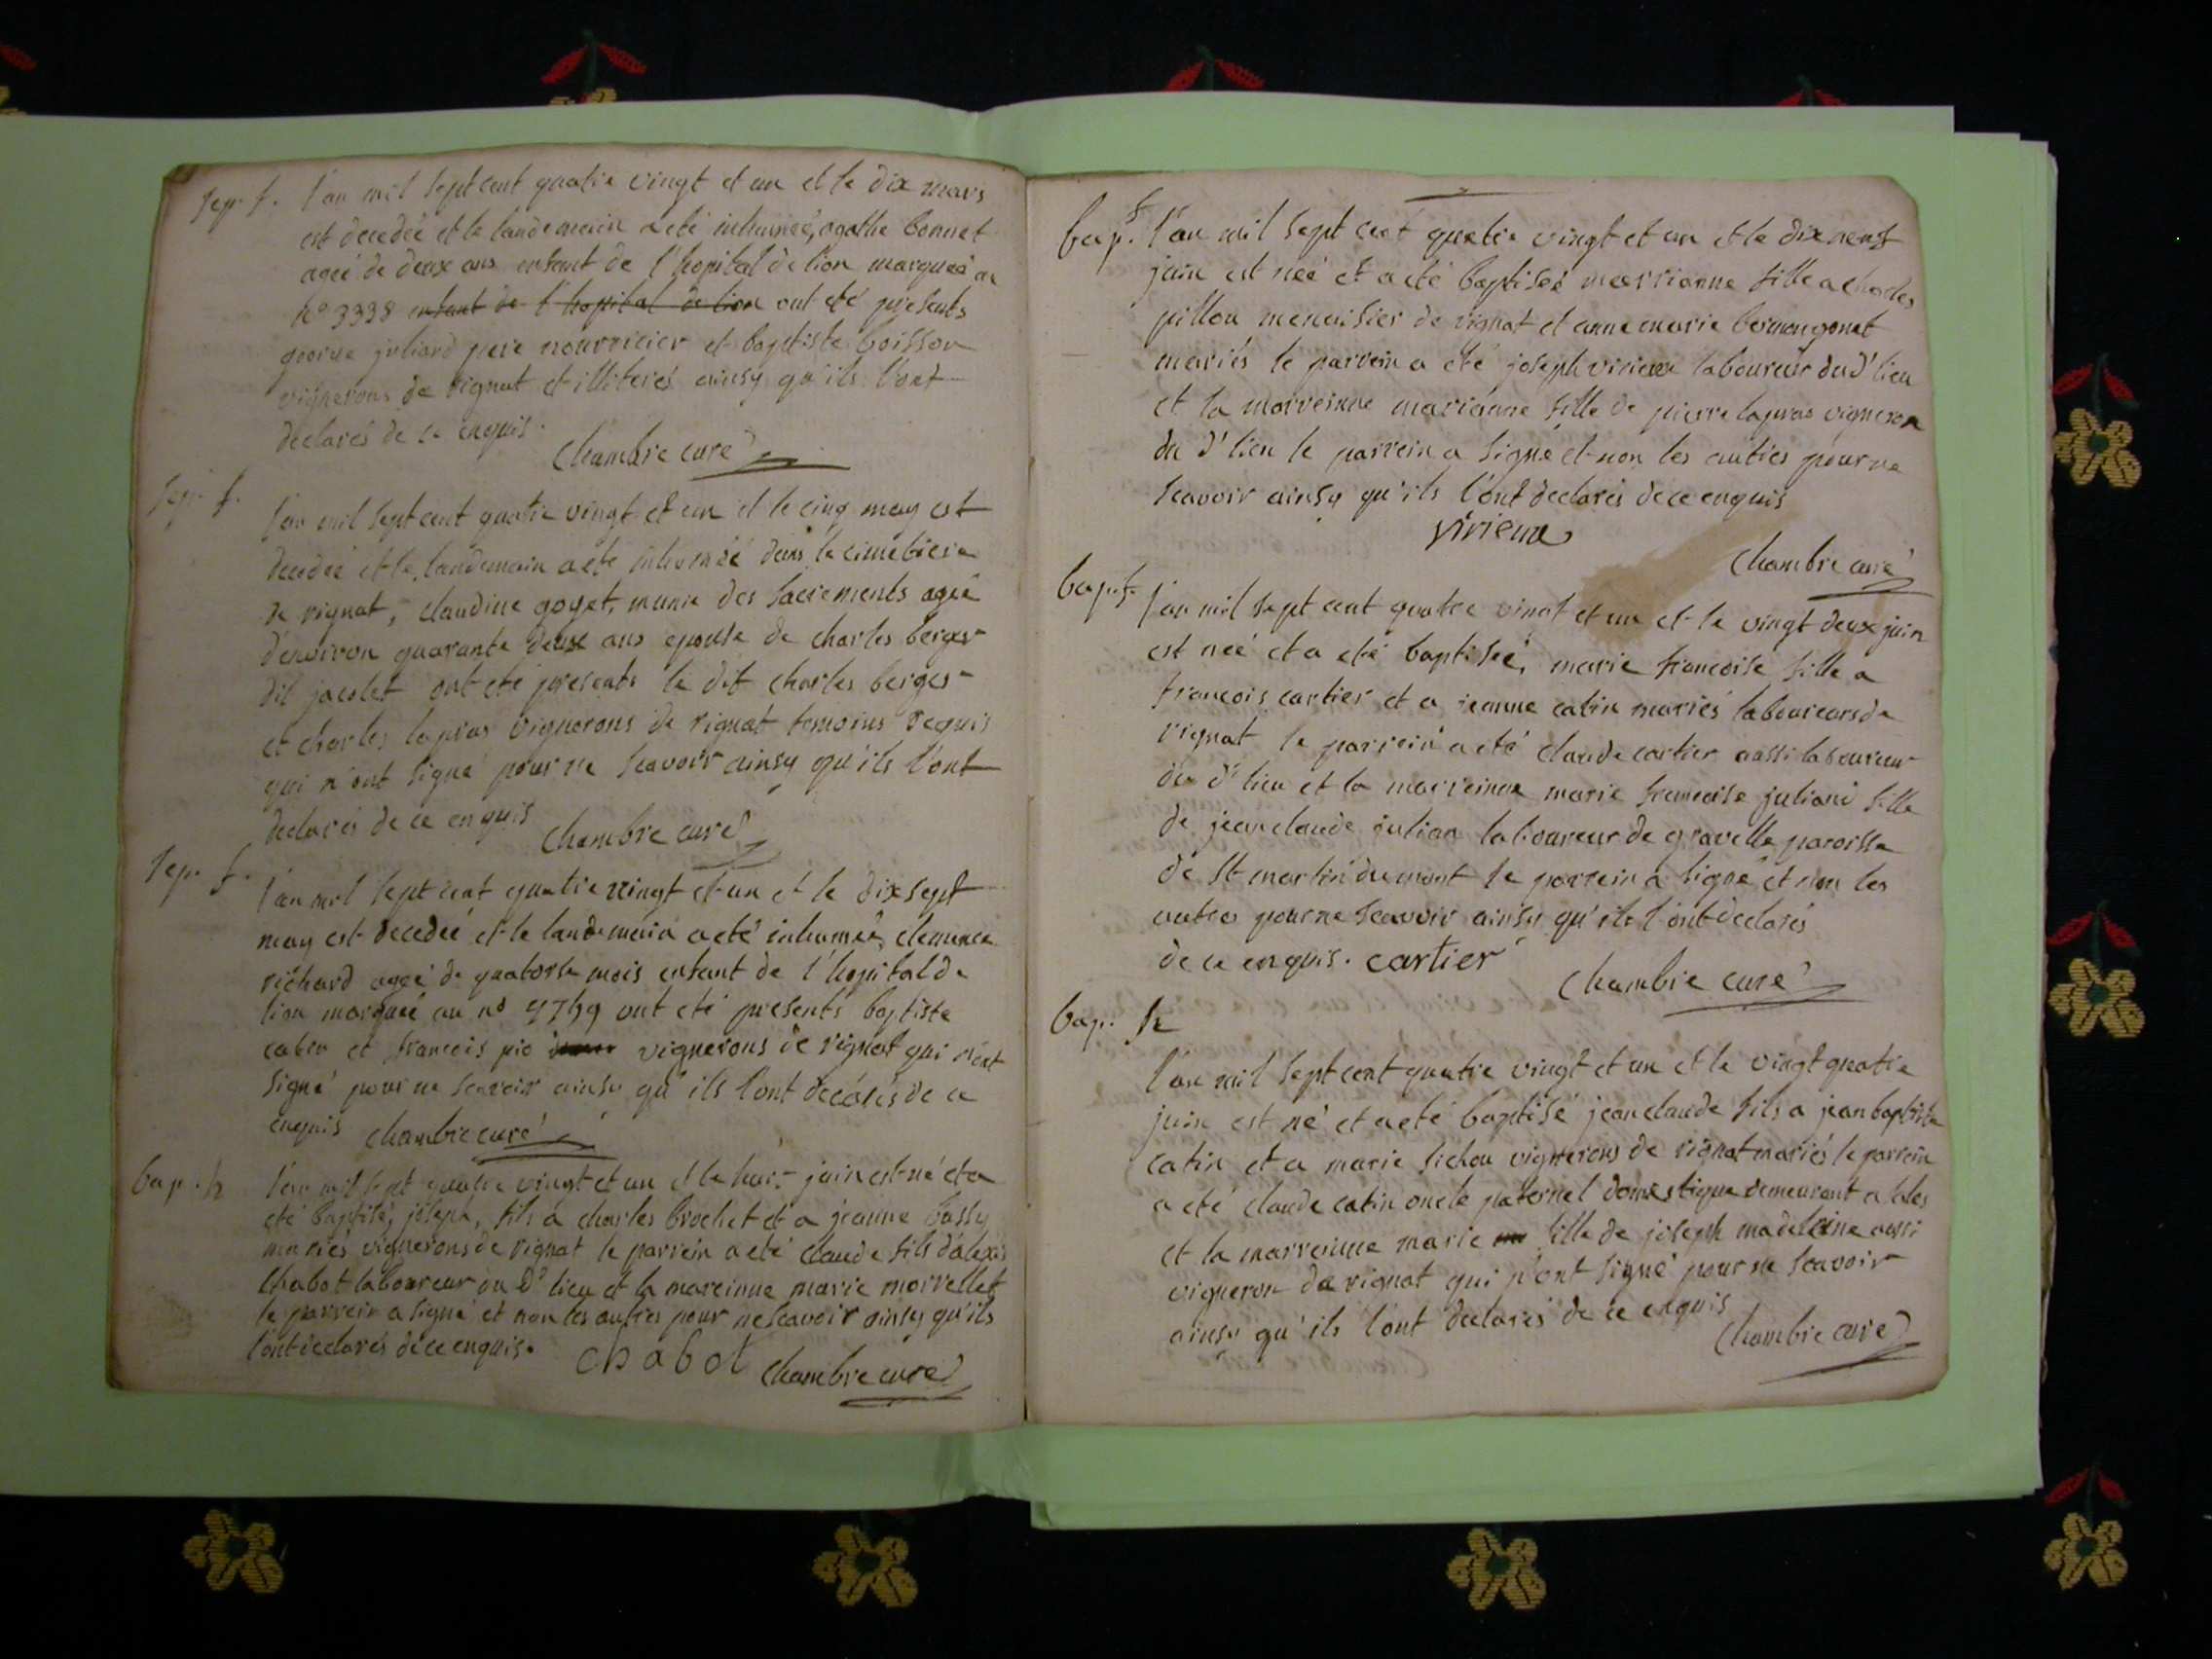 sep. f. l'an mil sept cent quatre vingt et un et le dix mars
est decedée et le landemain a eté inhumée, agathe bonnet
ageé de deux ans enfant de l'hopital de lion marqueé au
n° 3338 enfant de l'hopital de lion ont eté presents
george juliard pere nourricier et baptiste boisson
vignerons de rignat et illiterés ainsy qu'ils l'ont
declarés de ce enquis.
Chambre curé
sep. f.
l'an mil sept cent quatre vingt et un et le cinq may est
decedeé et le landemain a ete inhumée dans le cimetiere
de rignat, claudine goyet, munie des sacrements ageé
d'environ quarante deux ans epouse de charles berger
dit jacolet ont eté presents le dit charles berger
et charles lapras vignerons de rignat temoins requis
qui n'ont signé pour ne scavoir ainsy qu'ils l'ont
declarés de ce enquis
Chambre curé
sep. f.
l'an mil sept cent quatre vingt et un et le dix sept
may est decedeé et le landemain a eté inhumeé, clemence
richard ageé de quatorse mois enfant de l'hopital de
lion marqueé au n° ont eté presents baptiste
catin et francois pio vignerons de rignat qui n'ont
signé pour ne scavoir ainsy qu'ils l'ont declarés de ce
enquis Chambre curé
bap. h l'an mil sept quatre vingt et un et le huit juin est né et a
eté baptisé, joseph, fils a charles brochet et a jeanne bassy
mariés vignerons de rignat le parrein a eté claude fils d'alexis
Chabot laboureur du d' lieu et la mareinne marie morvellet
le parrein a signé et non les autres pour ne scavoir ainsy qu'ils
l'ont declarés de ce enquis.
chabot Chambre curé
bap. f l'an mil sept cent quatre vingt et un et le dix neuf
juin est neé et a eté baptiseé marrianne fille a charles
pillon menuisier de rignat et anne marie
mariés le parrein a eté joseph virieux laboureur du d' lieu
et la marreinne marianne fille de pierre lapras vigneron
du d' lieu le parrein a signé et non les autres pour ne
scavoir ainsy qu'ils l'ont declarés de ce enquis
virieux
Chambre curé
bap. f. l'an mil sept cent quatre vingt et un et le vingt deux juin
est neé et a eté baptiseé, marie francoise fille a
francois cartier et a jeanne catin mariés laboureurs de
rignat le parrein a eté claude cartier aussi laboureur
du d' lieu et la marreinne marie francoise juliand fille
de jean claude julian laboureur de gravelle paroisse
de St martin du mont le parrein a signé et non les
autres pour ne scavoir ainsy qu'ils l'ont declarés
de ce enquis. cartier
Chambre curé
bap. h
l'an mil sept cent quatre vingt et un et le vingt quatre
juin est né et a eté baptisé jean claude fils a jean baptiste
catin et a marie sichou vignerons de rignat mariés le parrein
a eté claude catin oncle paternel domestique demeurant a
et la marreinne marie fille de joseph madeleine aussi
vigneron de rignat qui n'ont signé pour ne scavoir
ainsy qu'ils l'ont declarés de ce enquis
Chambre curé